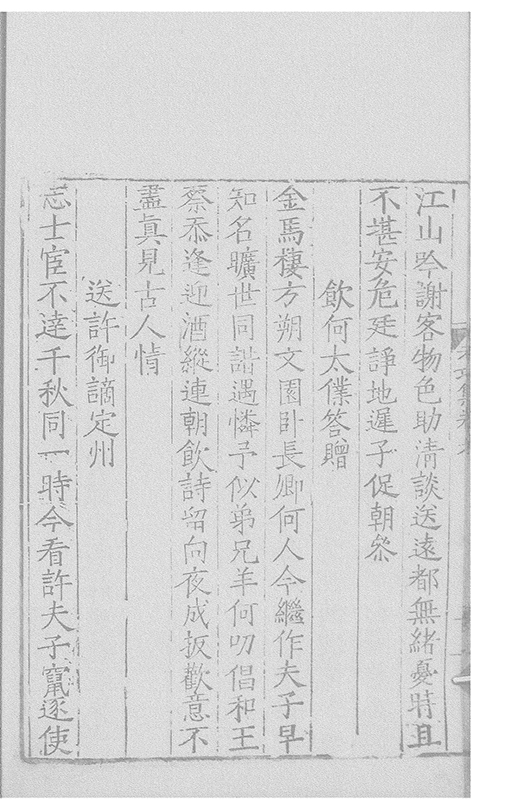 江山吟謝客物色助清談送遠都無緒憂時且
不堪安危廷諍地遲子促朝叅
飲何太僕答贈
金馬棲方朔文園卧長卿何人今繼作夫子早
知名曠世同諧遇憐予似弟兄羊何叨倡和王
蔡忝逢迎酒縱連朝飲詩留向夜成扳歡意不
盡真見古人情
送許御謫定州
志士宦不達千秋同一時今看許夫子竄逐使